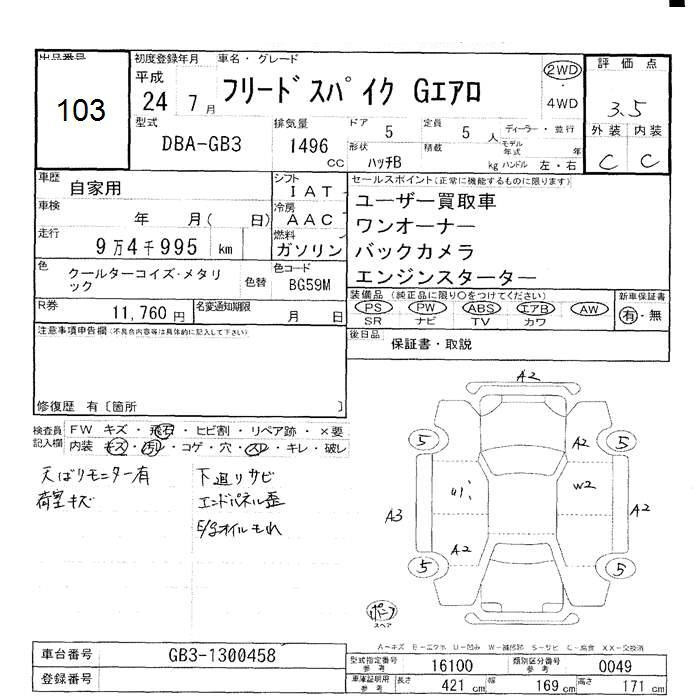 出品番号
103
初度登録年月
平成
24 7 月
車名・グレード
フリードスパイク Gエアロ
2WD
・
4WD
評価点
3.5
外装 内装
C C
型式
DBA-GB3
排気量
1496
CC
ドア 5
定員 5 人
ディーラー・並行
形状
ハッチB
積載
kg
モデル年式 年
ハンドル 左・右
車歴
自家用
シフト
IAT
車検
年 月( 日)
冷房
AAC
走行
9万4千995 km
燃料
ガソリン
色
クールターコイズ・メタリック
色替
色コード
BG59M
R券
11,760 円
名変通知期限
月 日
セールスポイント(正常に機能するものに限ります)
ユーザー買取車
ワンオーナー
バックカメラ
エンジンスターター
装備品 (純正品に限り○をつけてください)
PS PW ABS エアB AW
SR ナビ TV カワ
新車保証書
有・無
後日品
保証書・取説
注意事項申告欄(不具合内容等は具体的に記入して下さい)
修復歴 有〔箇所 〕
検査員記入欄
FW キズ・飛石・ヒビ割・リペア跡・×要
内装 キズ・汚レ・コゲ・穴・スレ・キレ・破レ
天ばりモニター有
荷室キズ
下廻りサビ
エンドパネル歪
E/gオイルもれ
A2
5
5
A2
U1
W2
A3
A2
A2
5
5
スペア
A-キズ B-エクボ U-凹み W-補修跡 S-サビ C-腐食 XX-交換済
車台番号
GB3-1300458
登録番号
型式指定番号
参考
16100
類別区分番号
参考
0049
車庫証明用
参考
長さ 421 cm
幅 169 cm
高さ 171 cm